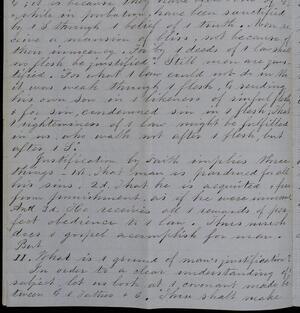 it is because they have
while in probation, have been sanctified
by t S through t belief of t truth. None re-
ceive t mansion of bliss, not because of
their innocency. For by t deeds of t law shall
no flesh be justified. Still men are jus-
tified. For what t law could not do in th
it was weak through t flesh, G sending
his own Son in t likeness of sinful flesh,
& for sin, condemned sin in t flesh, that
t righteousness of t law might be fulfilled
in us, who walk not after t flesh, but
after t S.
Justification by faith implies three
things – 1st. That man is pardoned for all
his sins. 2d. That he is acquitted & free
from punishment, as if he were innocent
And 3d. He receives all t rewards of per-
fect obedience to t law. Thus much
does t gospel accomplish for man.
But
II. What is t ground of man's justification?
In order to a clear understanding of t
subject, let us look at t covenant made be-
tween G t Father & C. Thou shalt make